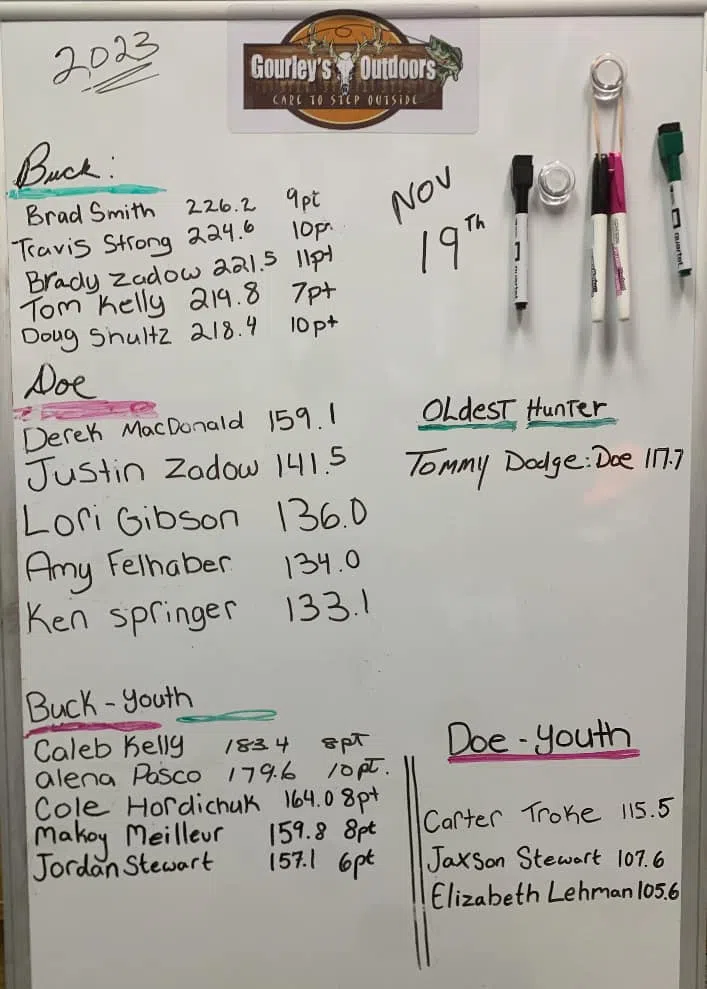 2023
Gourley's Outdoors
CARE TO STEP OUTSIDE
Buck:
Brad Smith 226.2 9pt
Travis Strong 224.6 10pt
Brady Zadow 221.5 11pt
Tom Kelly 219.8 7pt
Doug Shultz 218.4 10pt
NOV
19Th
Doe
Derek MacDonald 159.1
Justin Zadow 141.5
Lori Gibson 136.0
Amy Felhaber 134.0
Ken springer 133.1
OLdesT HunTer
Tommy Dodge: Doe 117.7
Buck - Youth
Caleb Kelly 183.4 8pt
alena Pasco 179.6 10pt.
Cole Hordichuk 164.0 8pt
Makoy Meilleur 159.8 8pt
Jordan Stewart 157.1 6pt
Doe - Youth
Carter Troke 115.5
Jaxson Stewart 107.6
Elizabeth Lehman 105.6
quartet
quartet